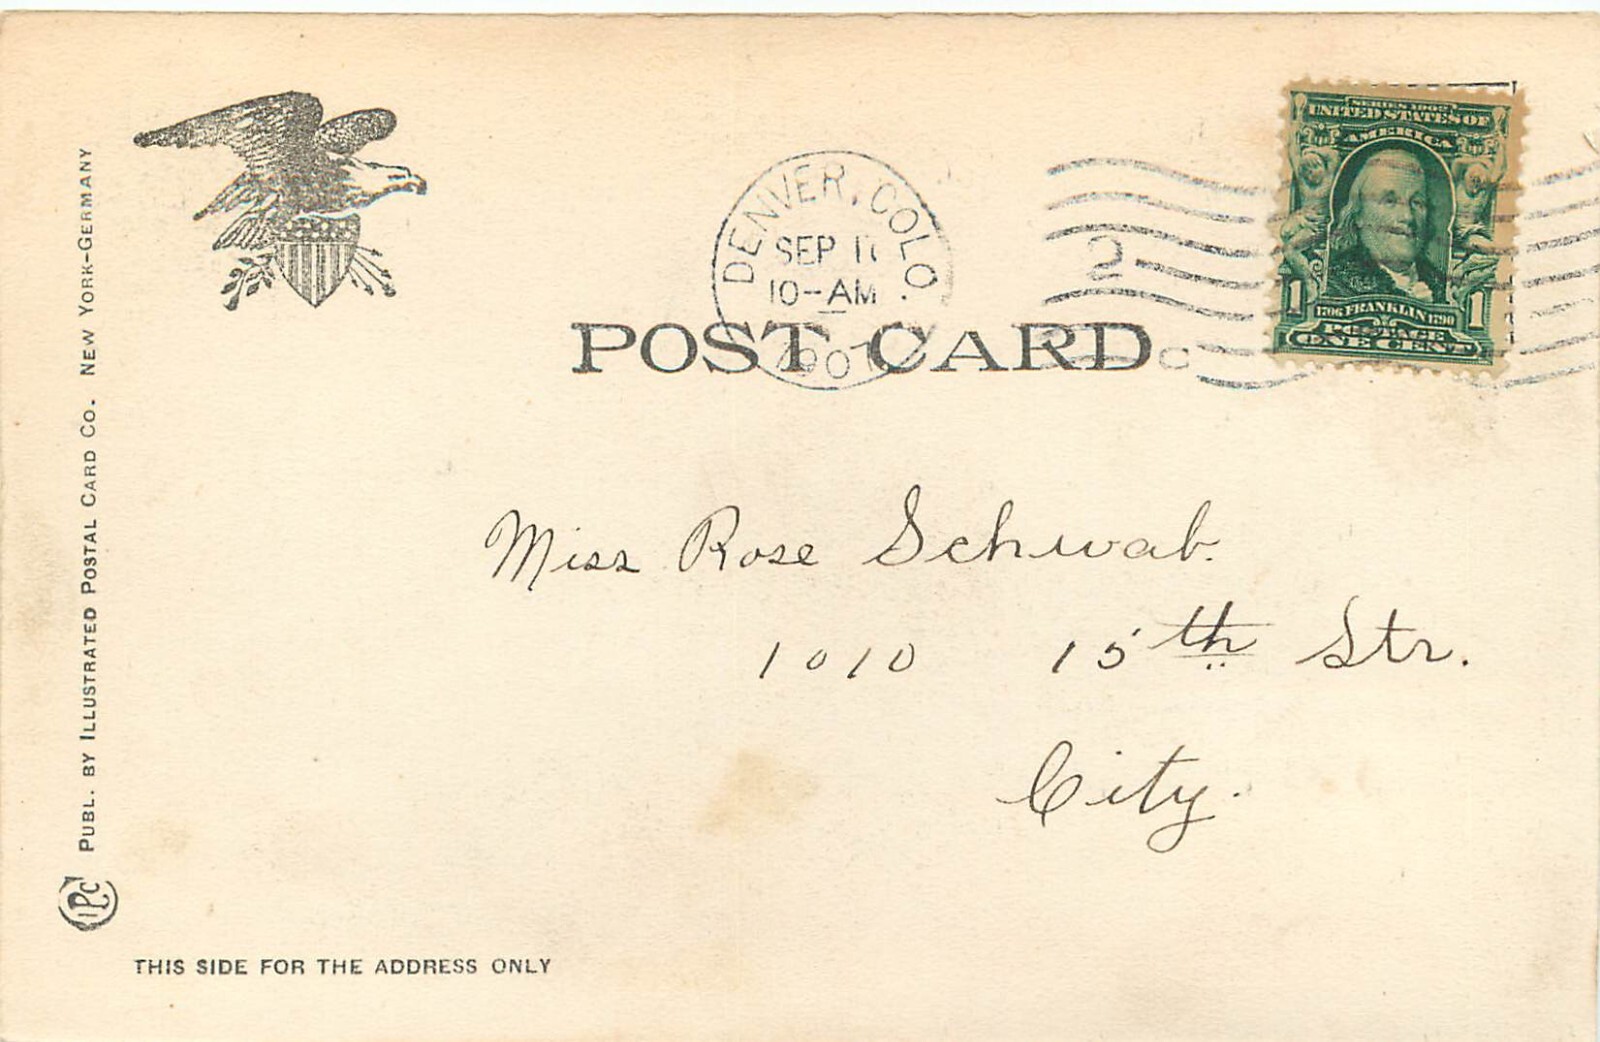 DENVER, COLO.
SEP 11
10-AM
1907
2
C
SERIES 1902
UNITED STATES OF
AMERICA
1706 FRANKLIN 1790
1 1
POSTAGE
ONE CENT
POST CARD
Miss Rose Schwab.
1010 15th Str.
City.
PUBL. BY ILLUSTRATED POSTAL CARD CO. NEW YORK-GERMANY
IPC
THIS SIDE FOR THE ADDRESS ONLY